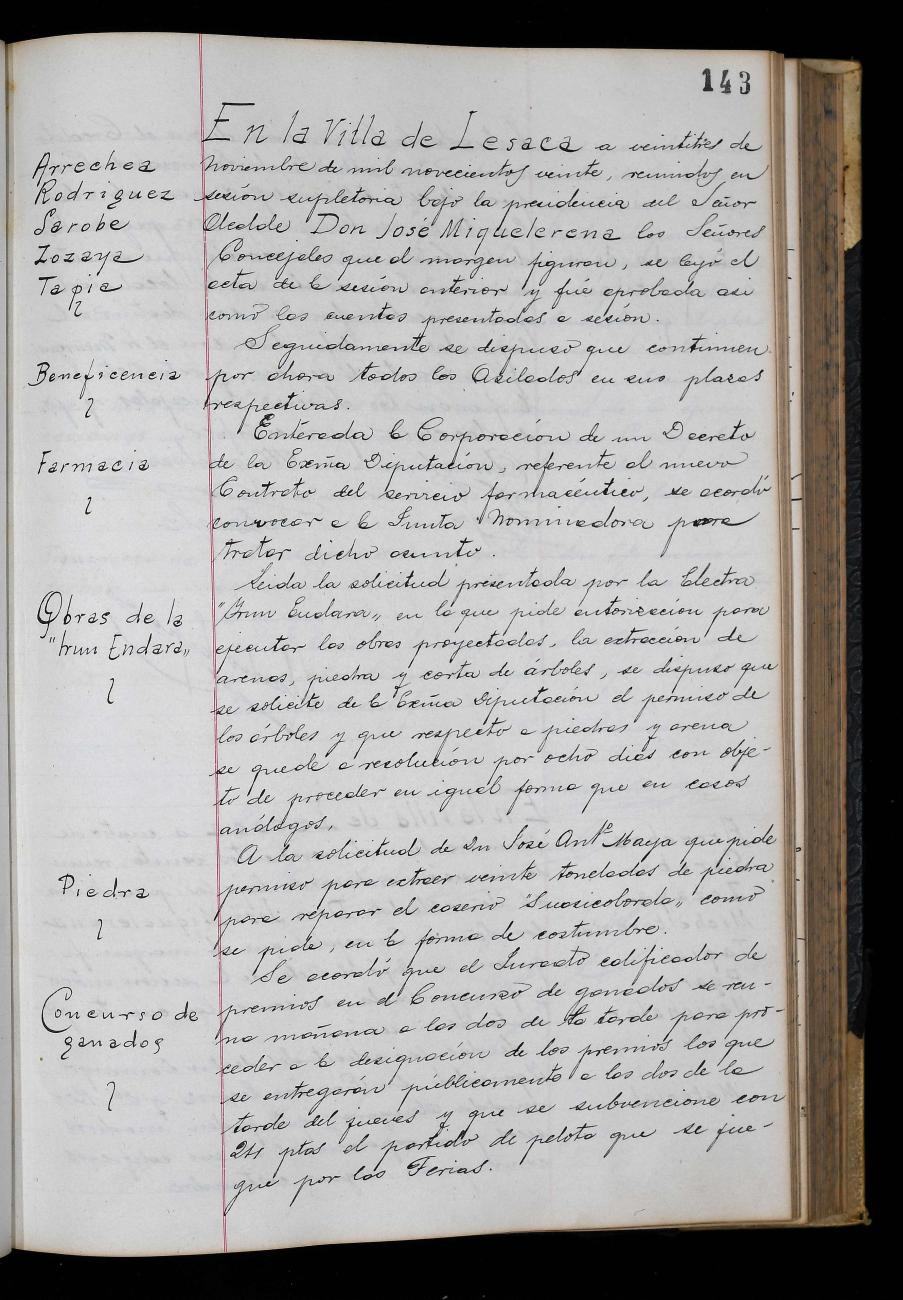 143
En la Villa de Lesaca a veintitres de
Arrechea
noviembre de mil novecientos veinte, reunidos en
Rodriguez
sesión supletoria bajo la presidencia del Señor
Sarobe
Alcalde Don José Miguelerena los Señores
Zozaya
Concejales que al margen figuran, se leyó el
Tapia
acta de la sesión anterior y fué aprobada asi
como las cuentas presentadas a sesión.
Seguidamente se dispuso que continuen
Beneficencia
por ahora todos los Asilados en sus plazas
respectivas.
Enterada la Corporación de un Decreto
Farmacia
de la Exmã Diputación, referente al nuevo
Contrato del servicio farmacéutico, se acordó
convocar a la Junta Nominadora para
tratar dicho asunto.
Leida la solicitud presentada por la Electra
Obras de la
"Irun Endara„ en la que pide autorización para
"Irun Endara„
ejecutar las obras proyectadas, la extracción de
arenas, piedra y corta de árboles, se dispuso que
se solicite de la Exmã Diputación el permiso de
los árboles y que respecto a piedras y arena
se quede a resolución por ocho dias con obje-
to de proceder en igual forma que en casos
análogos.
A la solicitud de Dn José Antº Maya que pide
Piedra
permiso para extraer veinte toneladas de piedra
para reparar el caserio "Suasicolorda„ como
se pide, en la forma de costumbre.
Se acordó que el Jurado calificador de
Concurso de
premios en el Concurso de ganados se reu-
ganados
na mañana a las dos de la tarde para pro-
ceder a la designación de los premios los que
se entregarán públicamente a las dos de la
tarde del jueves y que se subvencione con
24 ptas el partido de pelota que se jue-
gue por las Ferias.